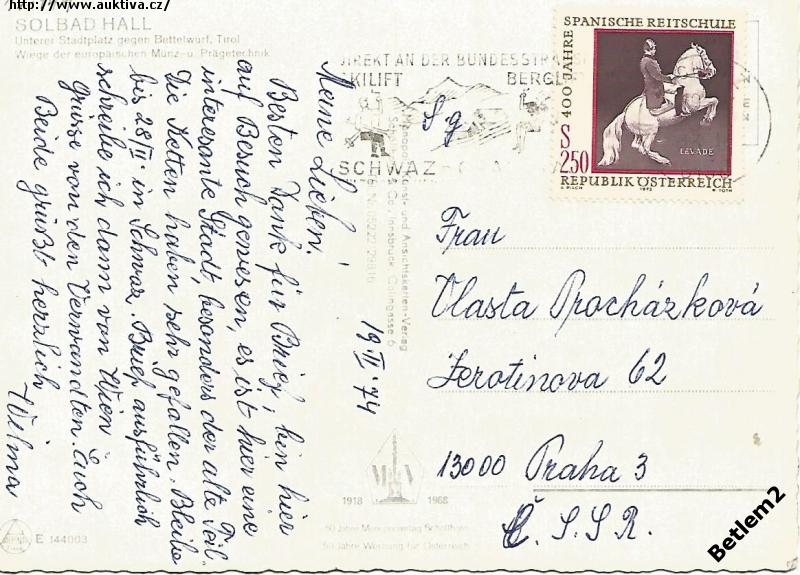 http://www.auktiva.cz/
SOLBAD HALL
Unterer Stadtplatz gegen Bettelwurf, Tirol
Wiege der europäischen Münz- u. Prägetechnik
Meine Lieben!
Besten Dank für Brief, bin hier
auf Besuch gewesen, es ist hier eine
interesante Stadt, besonders der alte Teil.
Die Ketten haben sehr gefallen. Bleibe
bis 28/II. in Schwaz. Brief ausführlich
schreibe ich dann von Wien
Grüsse von den Verwandten. Euch
Beide grüßt herzlich
Wilma
19/II. 74
DIREKT AN DER BUNDESSTRA
SKILIFT BERGL
SCHWAZ
Sg
400 JAHRE SPANISCHE REITSCHULE
S 2.50
LEVADE
REPUBLIK ÖSTERREICH
G. PILCH 1972 R. TOTH
Frau
Vlasta Procházková
Žerotinova 62
13000 Praha 3
Č. S. S. R.
Kunst- und Ansichtskarten-Verlag
& Co., Innsbruck
1918 1968
50 Jahre
50 Jahre Werbung für Österreich
E 144003
Betlem2